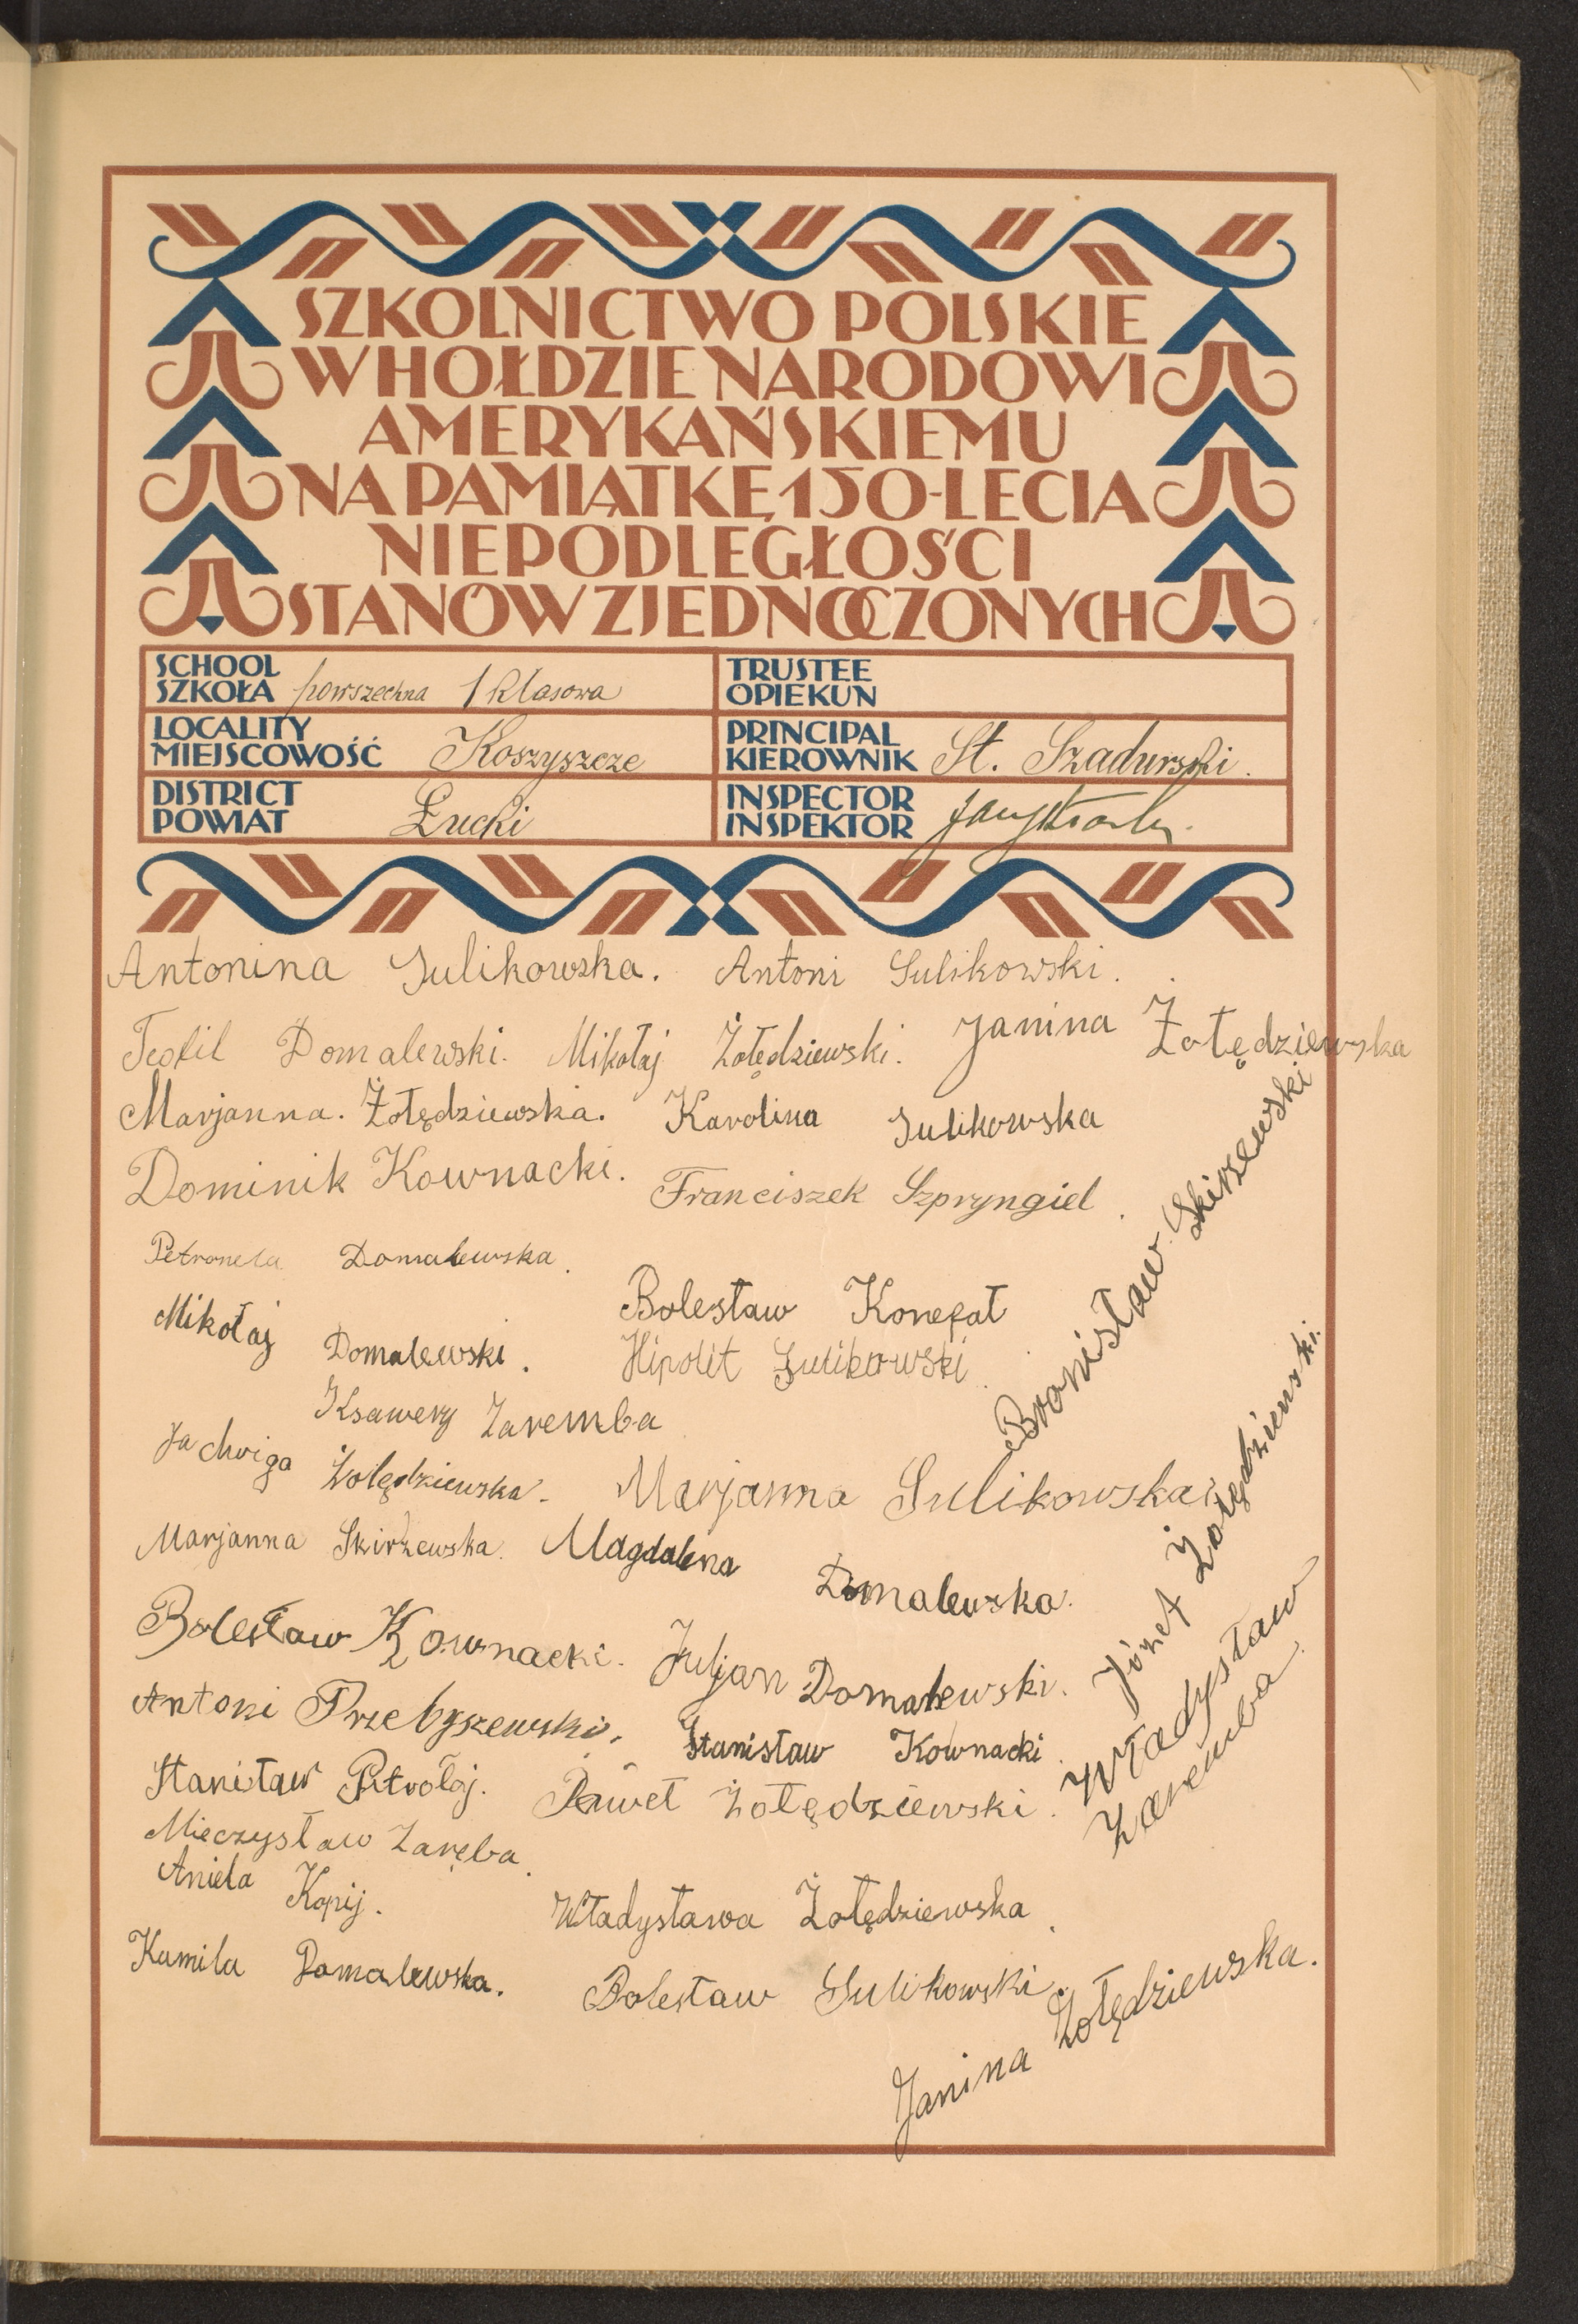 SZKOLNICTWO POLSKIE
W HOŁDZIE NARODOWI
AMERYKAŃSKIEMU
NA PAMIĄTKĘ 150-LECIA
NIEPODLEGŁOŚCI
STANÓW ZJEDNOCZONYCH
SCHOOL
SZKOŁA powszechna 1 klasowa
TRUSTEE
OPIEKUN
LOCALITY
MIEJSCOWOŚĆ Koszyszcze
PRINCIPAL
KIEROWNIK St. Szadurski.
DISTRICT
POWIAT Łucki
INSPECTOR
INSPEKTOR
Antonina Sulikowska. Antoni Sulikowski.
Teofil Domalewski. Mikołaj Żołędziewski. Janina Żołędziewska
Marjanna. Żołędziewska. Karolina Sulikowska
Dominik Kownacki. Franciszek Szpryngiel.
Petronela Domalewska.
Bolesław Konefał
Mikołaj Domalewski. Hipolit Sulikowski.
Bronisław Skirzewski
Ksawery Zaremba
Jadwiga Żołędziewska. Marjanna Sulikowska
Józef Żołędziewski.
Marjanna Skirzewska. Magdalena Domalewska.
Bolesław Kownacki. Juljan Domalewski.
Władysław Zaremba.
Antoni Przebyszewski. Stanisław Kownacki.
Stanisław Pitrołaj. Paweł Żołędziewski.
Mieczysław Zaręba.
Aniela Kopij.
Władysława Żołędziewska.
Kamila Domalewska. Bolesław Sulikowski.
Janina Żołędziewska.